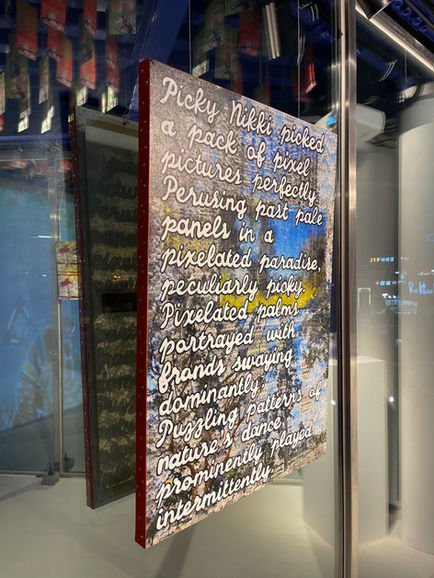 Picky Nikki picked
a pack of pixel
pictures perfectly.
Perusing past pale
panels in a
pixelated paradise,
peculiarly picky.
Pixelated palms
portrayed with
fronds swaying
dominantly.
Puzzling patterns of
nature's dance,
prominently played
intermittently.